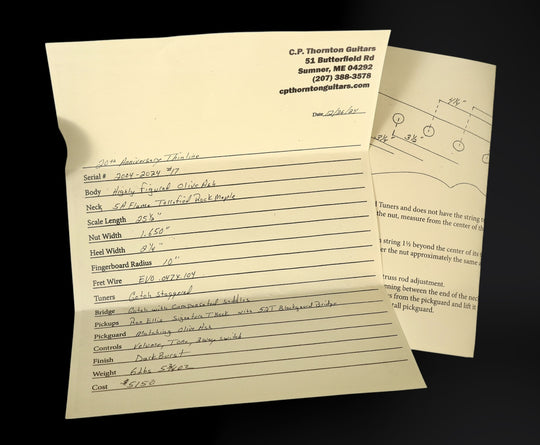 C.P. Thornton Guitars
51 Butterfield Rd
Sumner, ME 04292
(207) 388-3578
cpthorntonguitars.com
Date 12/26/24
20th Anniversary Thinline
Serial # 2004-2024 #17
Body Highly Figured Olive Ash
Neck 5A Flame Torrefied Rock Maple
Scale Length 25½"
Nut Width 1.650"
Heel Width 2¼"
Fingerboard Radius 10"
Fret Wire EVO .047x.104
Tuners Gotoh staggered
Bridge Gotoh with Compensated Saddles
Pickups Ron Ellis Signature T Neck with 52T Blackguard Bridge
Pickguard Matching Olive Ash
Controls Volume, Tone, 3 way switch
Finish Dark Burst
Weight 6 lbs oz
Cost $5150
d Tuners and does not have the string t
the nut, measure from the center of th
string 1½ beyond the center of its
er the nut approximately the same a
truss rod adjustment.
ening between the end of the nec
rs from the pickguard and lift it
rall pickguard.